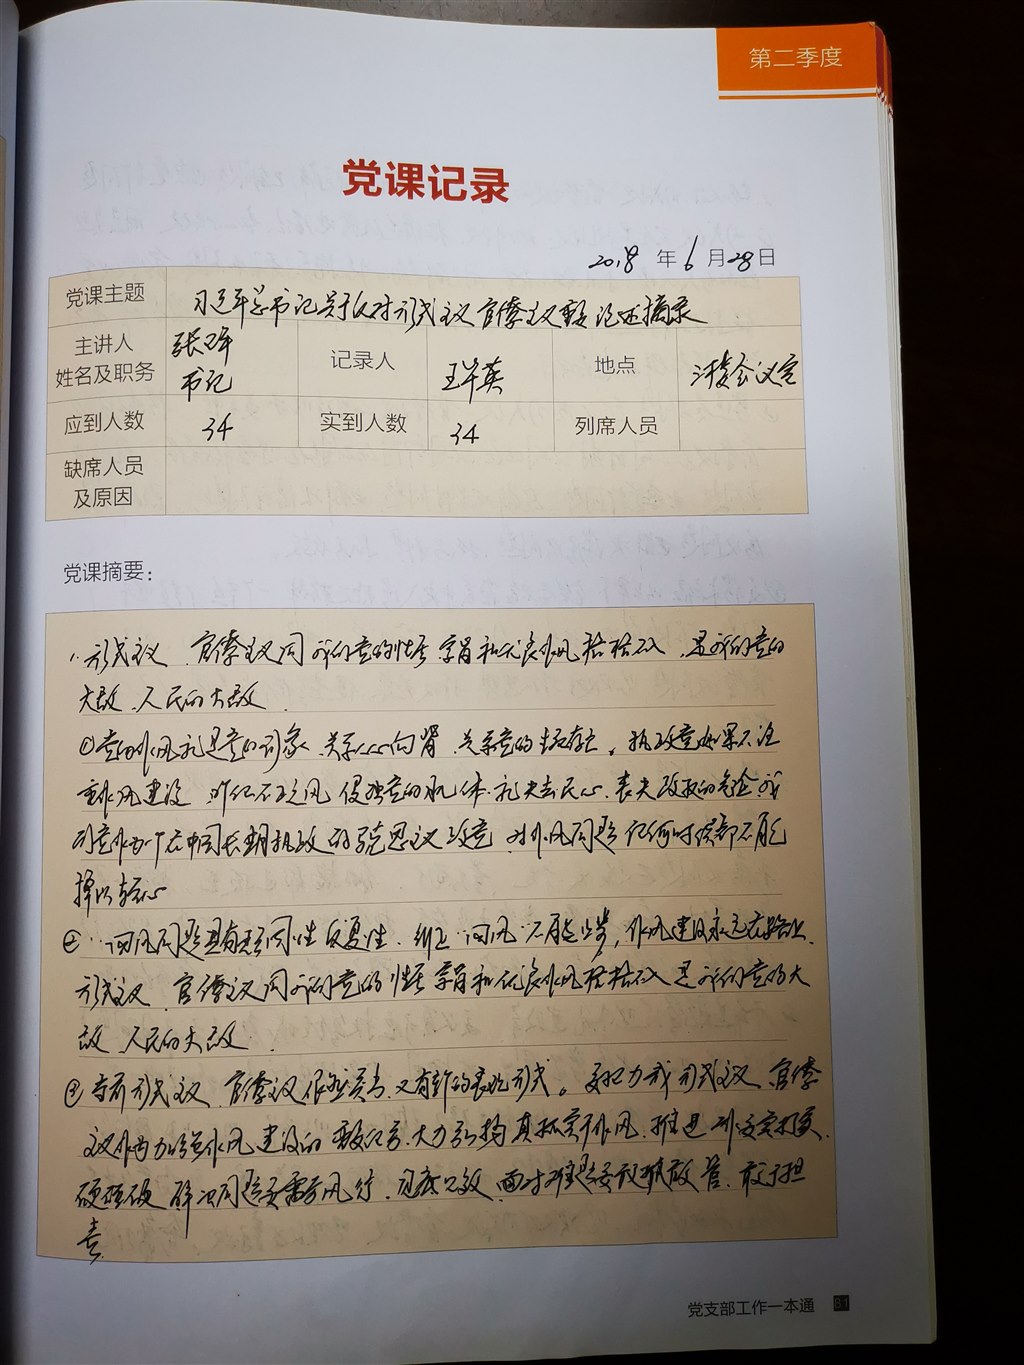 第二季度
党课记录
2018 年 6 月 28 日
党课主题 习近平总书记关于反对形式主义官僚主义重要论述摘录
主讲人
姓名及职务
书记
记录人 王
地点 会议室
应到人数 34 实到人数 34 列席人员
缺席人员
及原因
党课摘要：
1.形式主义、官僚主义同我们党的性质宗旨和优良作风格格不入，是我们党的
大敌、人民的大敌
①党的作风就是党的形象，关系人心向背，关系党的生死存亡。执政党如果不注
重作风建设，听任不正之风侵蚀党的肌体，就失去民心、丧失政权的危险。我
们党作为一个在中国长期执政的马克思主义政党，对作风问题任何时候都不能
掉以轻心
②"四风"问题具有顽固性反复性，纠正"四风"不能止步，作风建设永远在路上。
形式主义、官僚主义同我们党的性质宗旨和优良作风格格不入，是我们党的大
敌、人民的大敌
③当前形式主义、官僚主义依然突出，又有新的表现形式。要把力戒形式主义、官僚
主义作为加强作风建设的重要任务，大力弘扬真抓实干作风，推进
硬碰硬，解决问题要雷厉风行、见底见效，面对难题要敢抓敢管、敢于担
责
党支部工作一本通 81